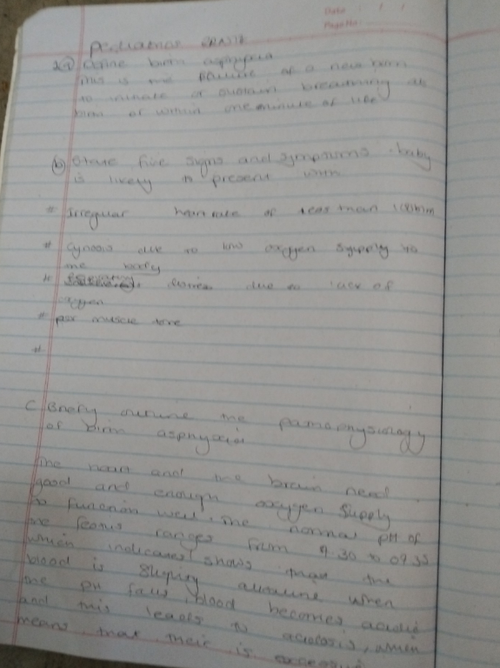 Date : / /
Page No:
Pediatrics
2a) Define birth asphyxia
This is the failure of a new born
to initiate or sustain breathing at
birth or within one minute of life
b) State five signs and symptoms baby
is likely to present with
* Irregular heart rate of less than 100b/m
* Cynosis due to low oxygen supply to
the body
* due to lack of
oxygen
* poor muscle tone
*
C Briefly outline the pathophysiology
of birth asphyxia
The heart and the brain need
good and enough oxygen supply
to function well. The normal pH of
the feotus ranges from to
which indicates/shows that the
blood is slightly alkaline when
the pH falls, blood becomes acidic
and this leads to acidosis, which
means that their is